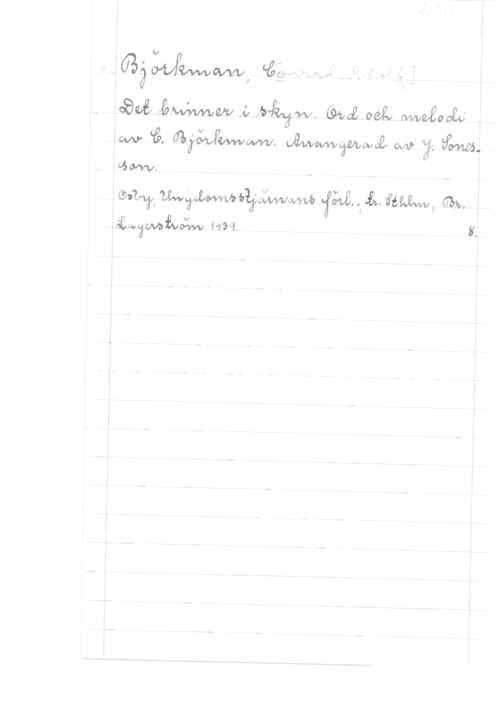 Björkman, C[onrad Adolf]
Det brinner i skyn. Ord och melodi
av C. Björkman. Arrangerad av J. Jones-
son.
Osby, Ungdomsstjärnans förl.; tr. Sthlm, Br.
Lagerström 1939. 8.